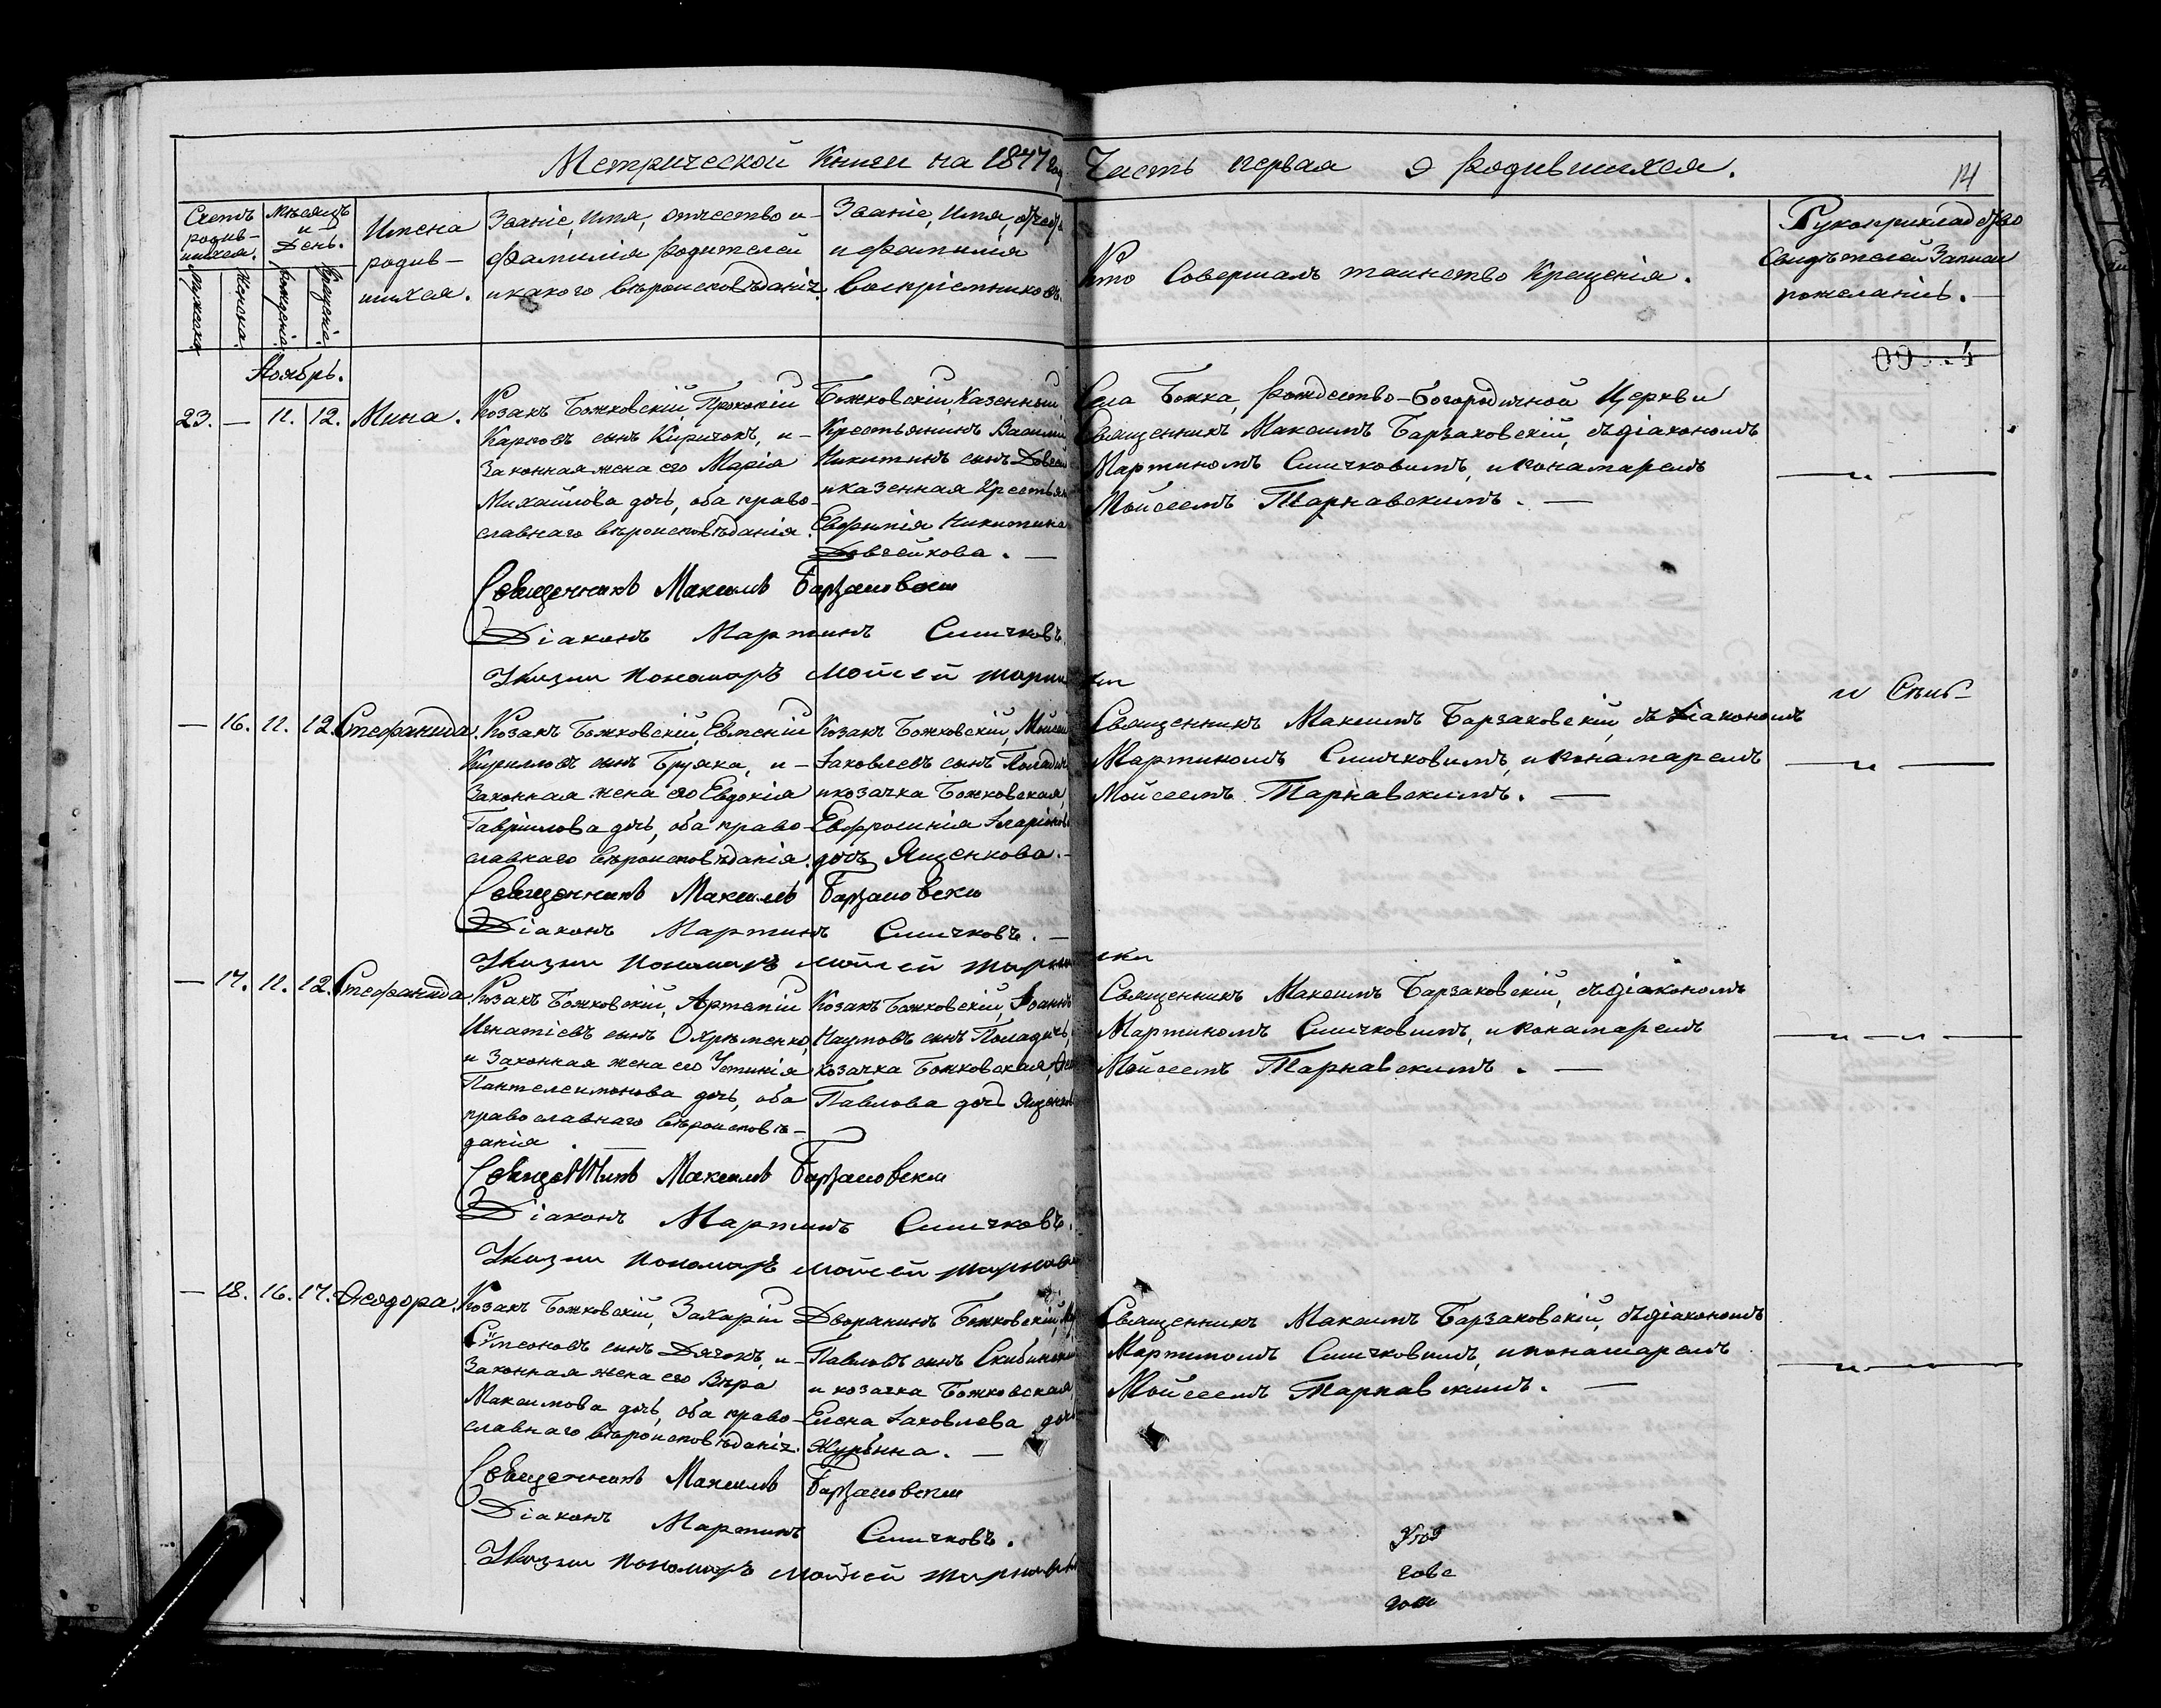 Метрической Книги на 1847 год Часть первая о родившихся.
14
Счетъ родив-шихся.
Мѣсяцъ и День.
Мужеска.
Женска.
Рожденія.
Крещенія.
Имена
родив-
шихся.
Званіе, Имя, отчество и-
Фамилія Родителей
и какого вѣроисповѣданія.
Званіе, Имя, отчест
и Фамилія
воспріемниковъ.
Кто Совершалъ таинство Крещенія.
Рукоприкладство
Свидѣтелей Записи
пожеланію.
Ноябрь.
23. — 11. 12. Мина.
Козакъ Божковскій, Прокопій
Карповъ сынъ Киричокъ, и-
Законная жена его Марія
Михайлова дочь, оба право-
славнаго вѣроисповѣданія.
Божковскій, Казенный
Крестьянинъ Василій
Никитинъ сынъ
и казенная Крестьян
Евфимія Никитина
Довгейкова. —
Села Божка, Рождество-Богородичной Церкви
Священникъ Максимъ Барзаковскій, съ діакономъ
Мартиномъ Смичковимъ, и понамаремъ
Мойсеемъ Тарнавскимъ. —
Священникъ Максимъ Барзаковски
Діаконъ Мартинъ Смичковъ.
Пономарь Мойсей Тарнавски
— 16. 11. 12. Стефанида.
Козакъ Божковскій, Евменій
Кирилловъ сынъ Бруяка, и-
Законная жена его Евдокія
Гавріилова дочь, оба право-
славнаго вѣроисповѣданія.
Козакъ Божковскій, Мойсей
Іаковлевъ сынъ
и козачка Божковская,
Евфросинія Иларіонова
дочь Ященкова. -
Священникъ Максимъ Барзаковскій, съ Діакономъ
Мартиномъ Смичковимъ, и понамаремъ
Мойсеемъ Тарнавскимъ. —
Священникъ Максимъ Барзаковски
Діаконъ Мартинъ Смичковъ. —
Пономарь Мойсей Тарнавски
— 17. 11. 12. Стефанида
Козакъ Божковскій, Артемій
Игнатіевъ сынъ Охрѣменко,
и Законная жена его Устинія
Пантелеимонова дочь, оба
православнаго вѣроисповѣ-
данія. —
Козакъ Божковскій, Іоаннъ
Наумовъ сынъ Поладичъ,
козачка Божковская,
Павлова дочь Ященкова
Священникъ Максимъ Барзаковскій, съ діакономъ
Мартиномъ Смичковимъ, и понамаремъ
Мойсеемъ Тарнавскимъ. —
Священникъ Максимъ Барзаковски
Діаконъ Мартинъ Смичковъ.
Пономарь Мойсей Тарнавски
— 18. 16. 17. Ѳеодора.
Козакъ Божковскій, Захарій
Симеоновъ сынъ Дячокъ, и-
Законная жена его Вѣра
Максимова дочь, оба право-
славнаго вѣроисповѣданія.
Дворянинъ Божковскій,
Павловъ сынъ Скибинскій
и козачка Божковская,
Елена Іаковлева дочь
Журьина. —
Священникъ Максимъ Барзаковскій, съ діакономъ
Мартиномъ Смичковимъ, и понамаремъ
Мойсеемъ Тарнавскимъ. —
Священникъ Максимъ Барзаковски
Діаконъ Мартинъ Смичковъ.
Пономарь Мойсей Тарнавски